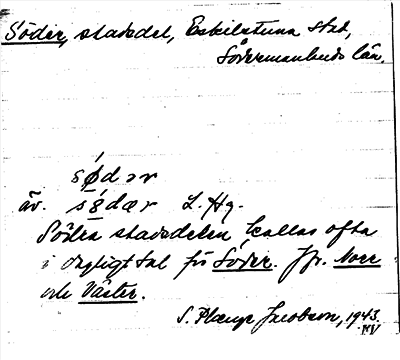 Söder, stadsdel, Eskilstuna stad,
Södermanlands län.
sødər
äv. sødær L. Hg.
Södra stadsdelen kallas ofta
i dagligt tal för Söder. Jfr. Norr
och Väster.
S. Plænge Jacobson, 1943.